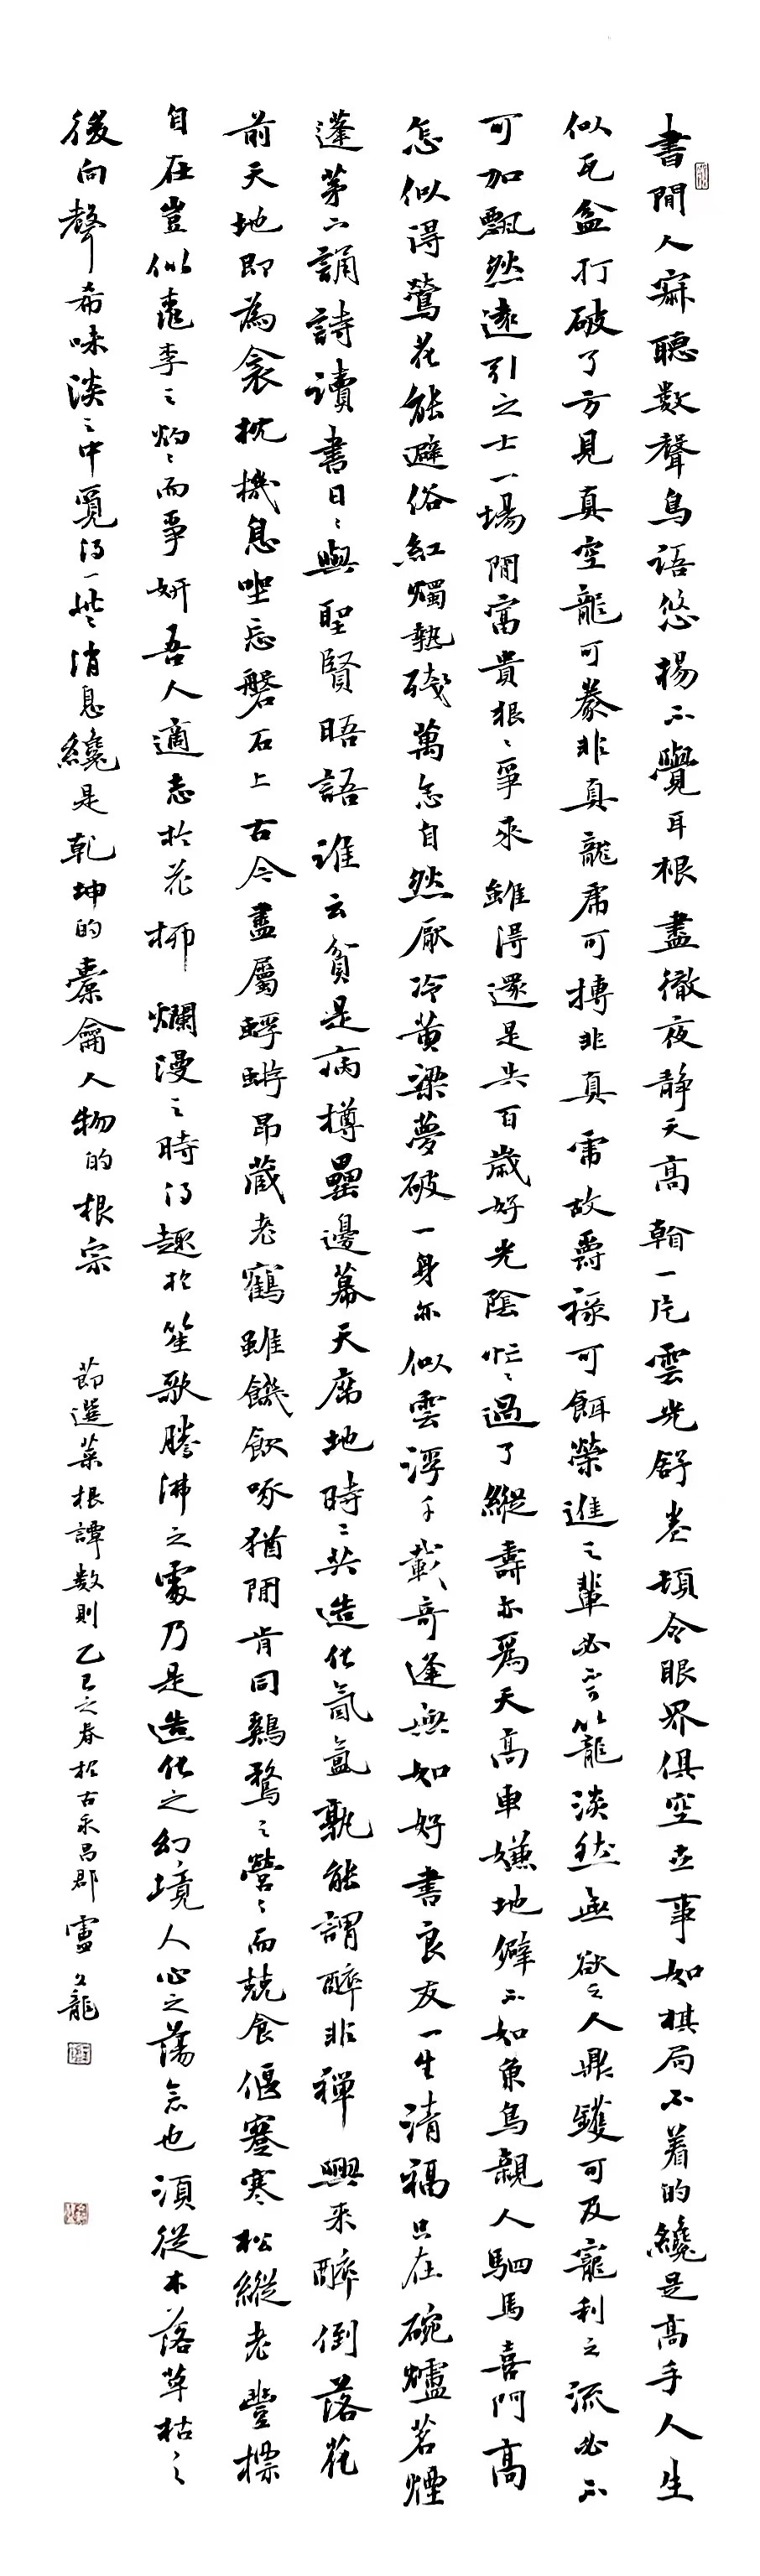 書閒人寐聽數聲鳥語悠揚不覺耳根盡徹夜静天高翰一片雲光舒卷頓令眼界俱空世事如棋局不着的纔是高手人生
似瓦盆打破了方見真空龍可豢非真龍虎可搏非真虎故爵祿可餌榮進之輩必不可以籠淡然無欲之人鼎鑊可及寵利之流必不
可加飄然遠引之士一場閒富貴狠〻爭來雖得還是失百歲好光陰忙〻過了縱壽亦爲夭高車嫌地僻不如魚鳥親人駟馬喜門高
怎似得鶯花能避俗紅燭熱殘萬念自然厭冷黄梁夢破一身亦似雲浮千載奇逢無如好書良友一生清福只在碗爐茗煙
蓬茅下誦詩讀書日〻與聖賢晤語誰云貧是病樽罍邊幕天席地時〻共造化氤氳孰能謂醉非禪興来醉倒落花
前天地即為衾枕機息坐忘磐石上古今盡屬蜉蝣昂藏老鶴雖饑飲啄猶閒肯同鷄鶩之營〻而競食偃蹇寒松縱老豐標
自在豈似桃李之灼〻而爭妍吾人適志於花柳爛漫之時得趣於笙歌騰沸之處乃是造化之幻境人心之蕩念也須從木落草枯之
後向聲希味淡之中覓得一些消息纔是乾坤的橐龠人物的根宗
節選菜根譚数則乙巳之春於古永昌郡盧文龍